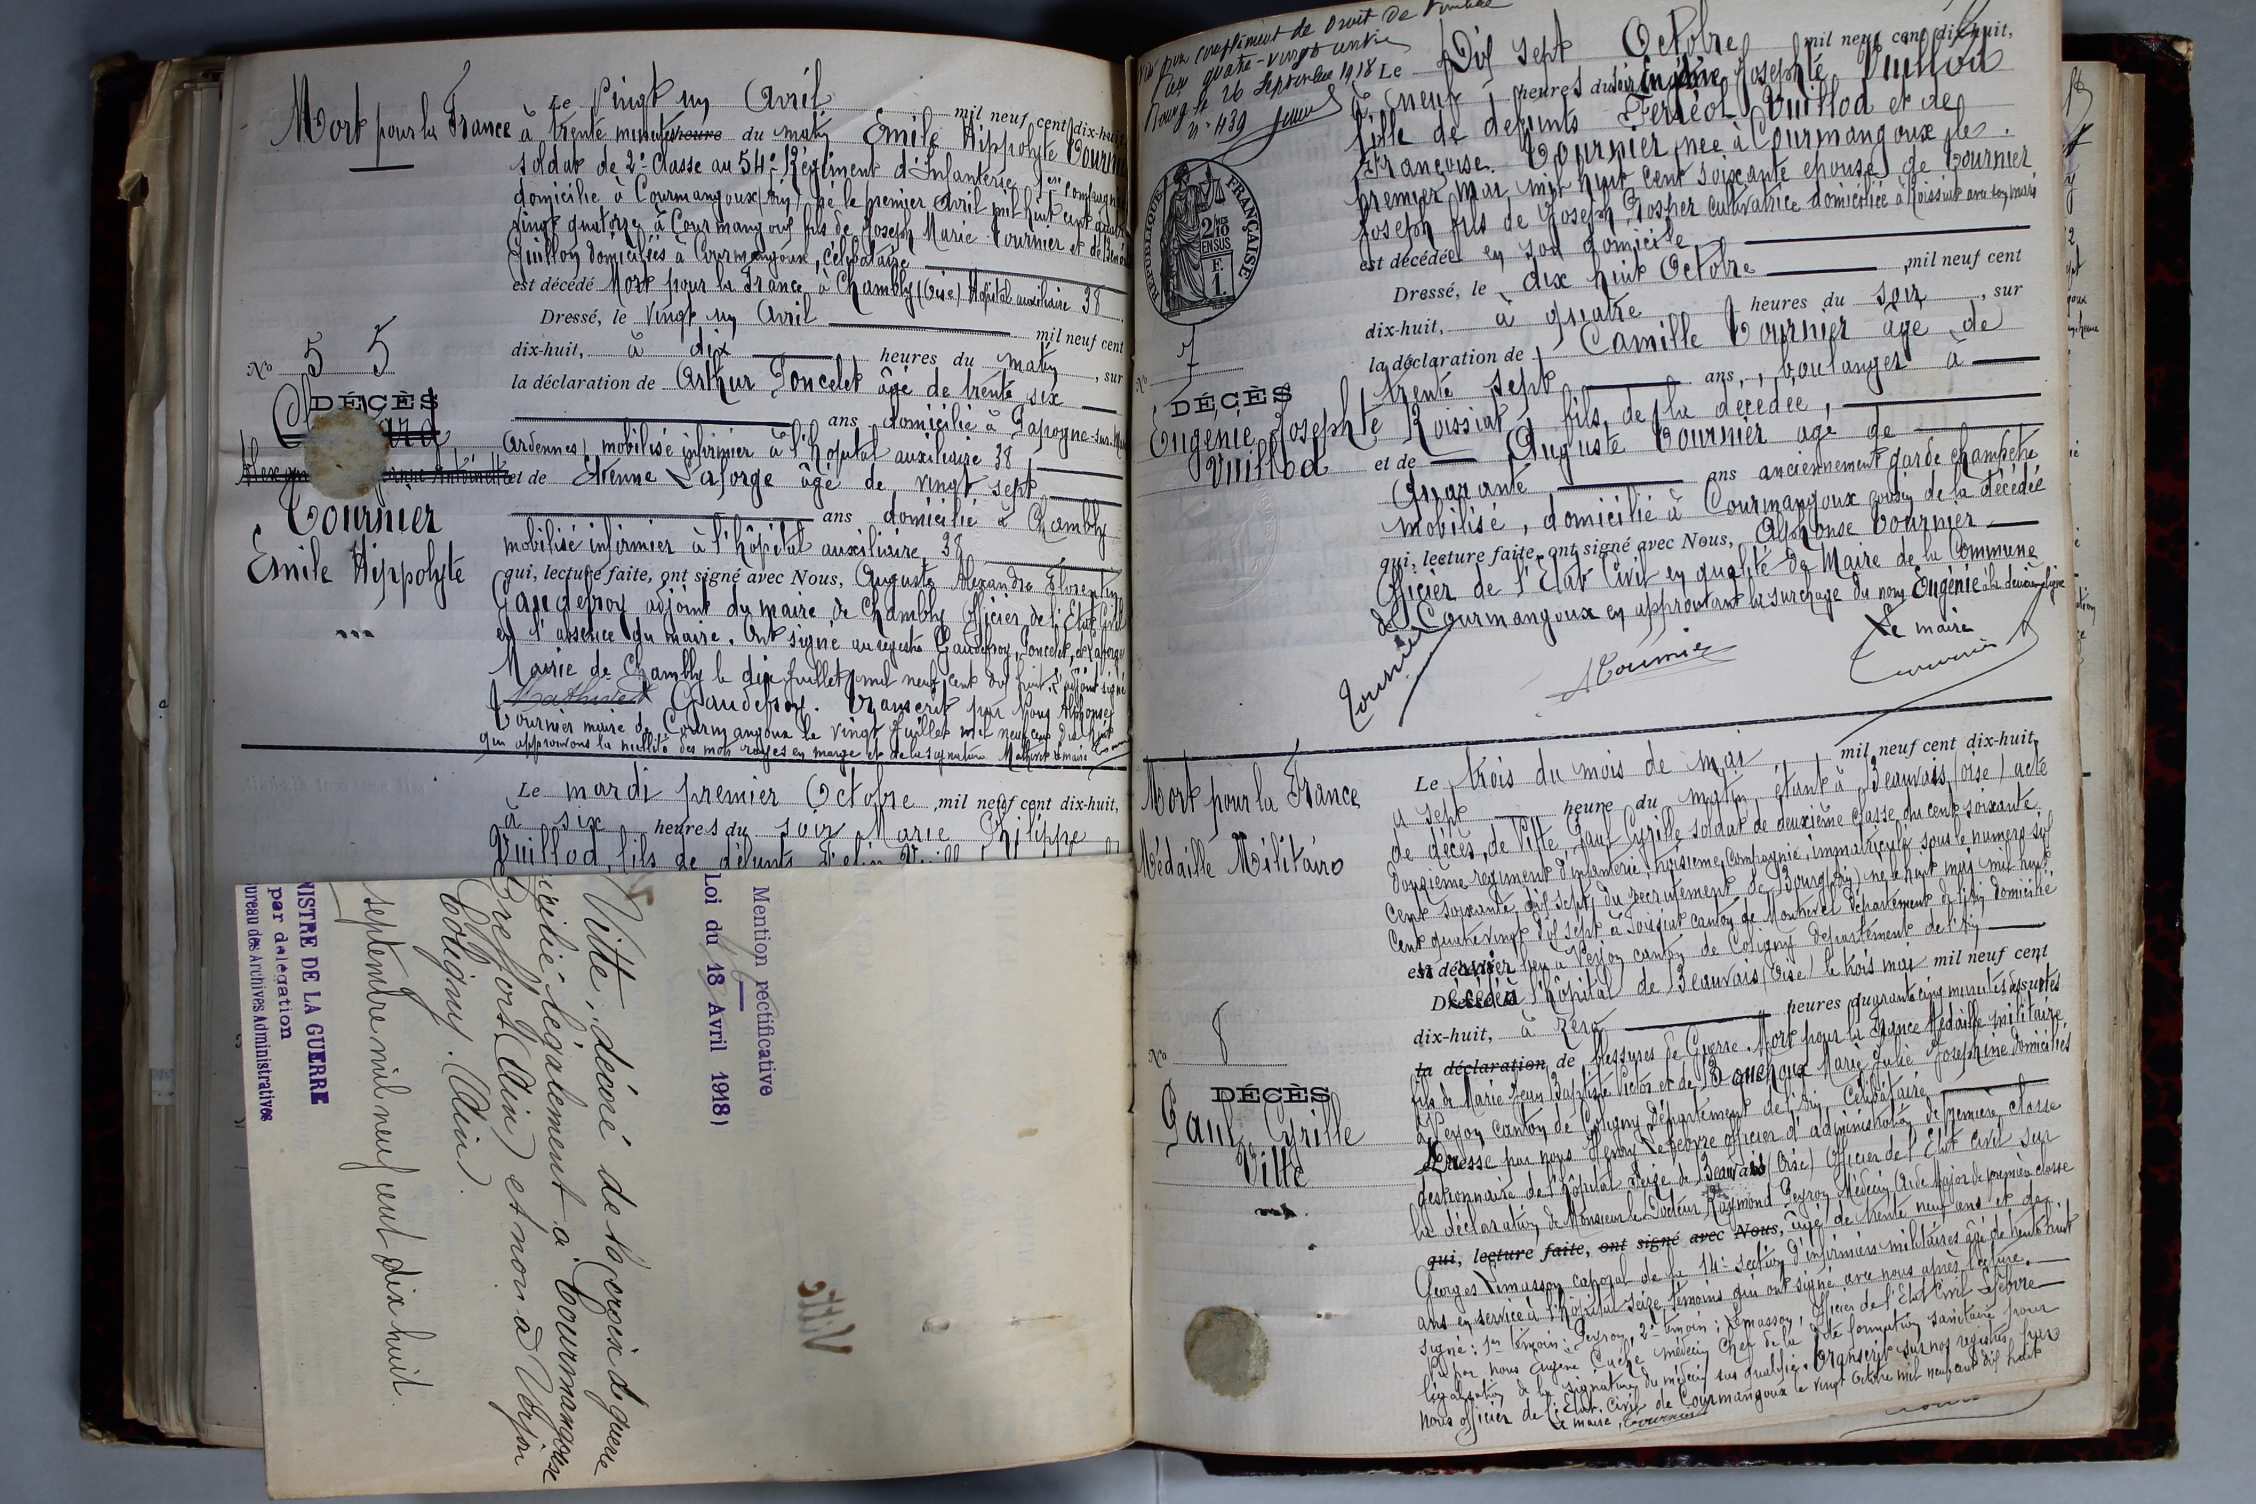 Mort pour la France
Le vingt un Avril mil neuf cent dix-huit
à trente minutes heure du matin Emile Hippolyte Tournier
soldat de 2e Classe au 54e Régiment d'Infanterie 1ere compagnie
domicilié à Courmangoux (Ain) né le premier Avril mil huit cent quatre
vingt quatorze à Courmangoux fils de Joseph Marie Tournier et de
Guillon domiciliés à Courmangoux, célibataire
est décédé Mort pour la France à Chambly (Oise) Hôpital auxiliaire 38
Dressé, le vingt un Avril mil neuf cent
dix-huit, à dix heures du matin, sur
la déclaration de Arthur Poncelet âgé de trente six
ans domicilié à
Ardennes) mobilisé infirmier à l'hôpital auxiliaire 38
et de Etienne Laforge âgé de vingt sept
ans domicilié à Chambly
mobilisé infirmier à l'hôpital auxiliaire 38
qui, lecture faite, ont signé avec Nous, Auguste Alexandre Florentin
Gaudefroy adjoint du maire de Chambly Officier de l'Etat Civil
en l'absence du maire. Ont signé au registre Gaudefroy, Poncelet, et Laforge
Mairie de Chambly le dix Juillet mil neuf cent dix huit. L'adjoint signé
Gaudefroy. Transcrit par Nous Alphonse
Tournier maire de Courmangoux le vingt Juillet mil neuf cent dix huit
qui approuvons la nullité des mots rayés en marge et de la signature Le maire
No 5 5
DÉCÈS
Tournier
Emile Hippolyte
Le mardi premier Octobre, mil neuf cent dix-huit,
à six heures du soir Marie Philippe
Vuillod, fils de défunts
Mention rectificative
Loi du 18 Avril 1918)
Vitte, décoré de la Croix de guerre
légalement à Courmangoux
Treffort (Ain) et non à Verjon
Coligny. (Ain).
septembre mil neuf cent dix huit.
NISTRE DE LA GUERRE
par délégation
ureau des Archives Administratives
Vitte
pour complément de Droit de Timbre
quatre-vingt
Bourg le 26 Septembre 1918
No 439
RÉPUBLIQUE FRANÇAISE
2/10 EN SUS
F. 1.
Le Dix sept Octobre mil neuf cent dix-huit,
à neuf heures du soir Eugénie Josephte Vuillod
fille de défunts Ferréol Vuillod et de
Françoise Tournier née à Courmangoux le
premier mai mil huit cent soixante épouse de Tournier
Joseph fils de Joseph Prosper cultivatrice domiciliée à Roissiat avec son mari
est décédée en son domicile
Dressé, le dix huit Octobre, mil neuf cent
dix-huit, à quatre heures du soir, sur
la déclaration de Camille Tournier âgé de
trente sept ans, boulanger à
Roissiat, fils de la décédée,
et de Auguste Tournier âgé de
Quarante ans anciennement garde champêtre
mobilisé, domicilié à Courmangoux cousin de la décédée
qui, lecture faite, ont signé avec Nous, Alphonse Tournier
Officier de l'Etat Civil en qualité de Maire de la Commune
de Courmangoux en approuvant la surcharge du nom Eugénie à la deuxième ligne
Le maire
Tournier
Tournier
Tournier
No 7
DÉCÈS
Eugénie Josephte
Vuillod
Mort pour la France
Médaille Militaire
Le trois du mois de mai mil neuf cent dix-huit,
à sept heure du matin, étant à Beauvais (Oise) acte
de décès de Vitte, Paul Cyrille soldat de deuxième classe du cent soixante
douzième régiment d'infanterie, troisième Compagnie, immatriculé sous le numéro six
cent soixante dix sept, du recrutement de Bourg (Ain) né le huit mai mil huit
cent quatre vingt dix sept à canton de Montrevel département de l'Ain domicilié
est décédé à Verjon canton de Coligny département de l'Ain
Dressé décédé à l'hôpital de Beauvais (Oise) le trois mai mil neuf cent
dix-huit, à zéro heures quarante cinq minutes des suites
la déclaration de blessures de Guerre. Mort pour la France Médaille militaire
fils de Marie Jean Baptiste Victor et de Marie Julie Josephine domiciliés
à Verjon canton de Coligny Département de l'Ain, célibataire
Dressé par nous Henry Lefebvre officier d'administration de première classe
gestionnaire de l'hôpital Seize de Beauvais (Oise) Officier de l'Etat civil sur
la déclaration de Monsieur le Docteur Raymond Peyron Médecin Aide Major de première classe
qui, lecture faite, ont signé avec Nous, âgé de trente neuf ans et de
Georges Limasson caporal de la 14e section d'infirmiers militaires âgé de trente huit
ans en service à l'hôpital Seize, témoins qui ont signé avec nous après lecture.
Signé: 1er témoin: Peyron, 2e témoin: Limasson, Officier de l'Etat Civil Lefebvre
Vu par nous Eugène médecin Chef de la dite formation sanitaire pour
légalisation de la signature du médecin sus qualifié. Transcrit sur nos registres par
nous officier de l'Etat Civil de Courmangoux le vingt Octobre mil neuf cent dix huit
Le maire, Tournier
No 8
DÉCÈS
Paul Cyrille
Vitte